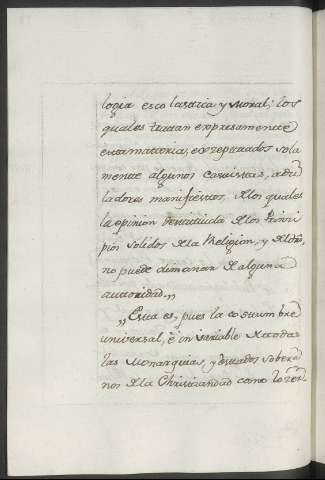 logia escolastica y Moral; los
quales tratan expresamente
esta materia, exceptuados sola
mente algunos casuistas, adu
ladores manifiestos, de los quales
la opinion destituida de los Princi
pios solidos de la Religion, y
no puede dimanar de alguna
autoridad."
"Esta es, pues la costumbre
universal, é invariable de todas
las Monarquias, y estados sobera
nos de la Christiandad como lo